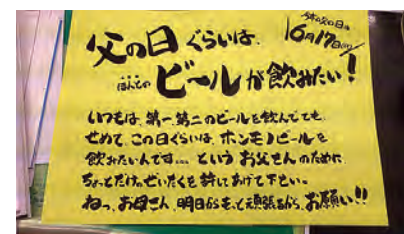 今年の父の日は
6月17日(日)
父の日ぐらいは、
ほんとの ビールが飲みたい!
いつもは、第一、第二のビールを飲んでても、
せめて、この日ぐらいは、ホンモノビールを
飲みたいんです… という お父さんのために、
ちょっとだけ、ぜいたくを許してあげて下さい。
ねっ、お母さん、明日からもっと頑張るから、お願い!!